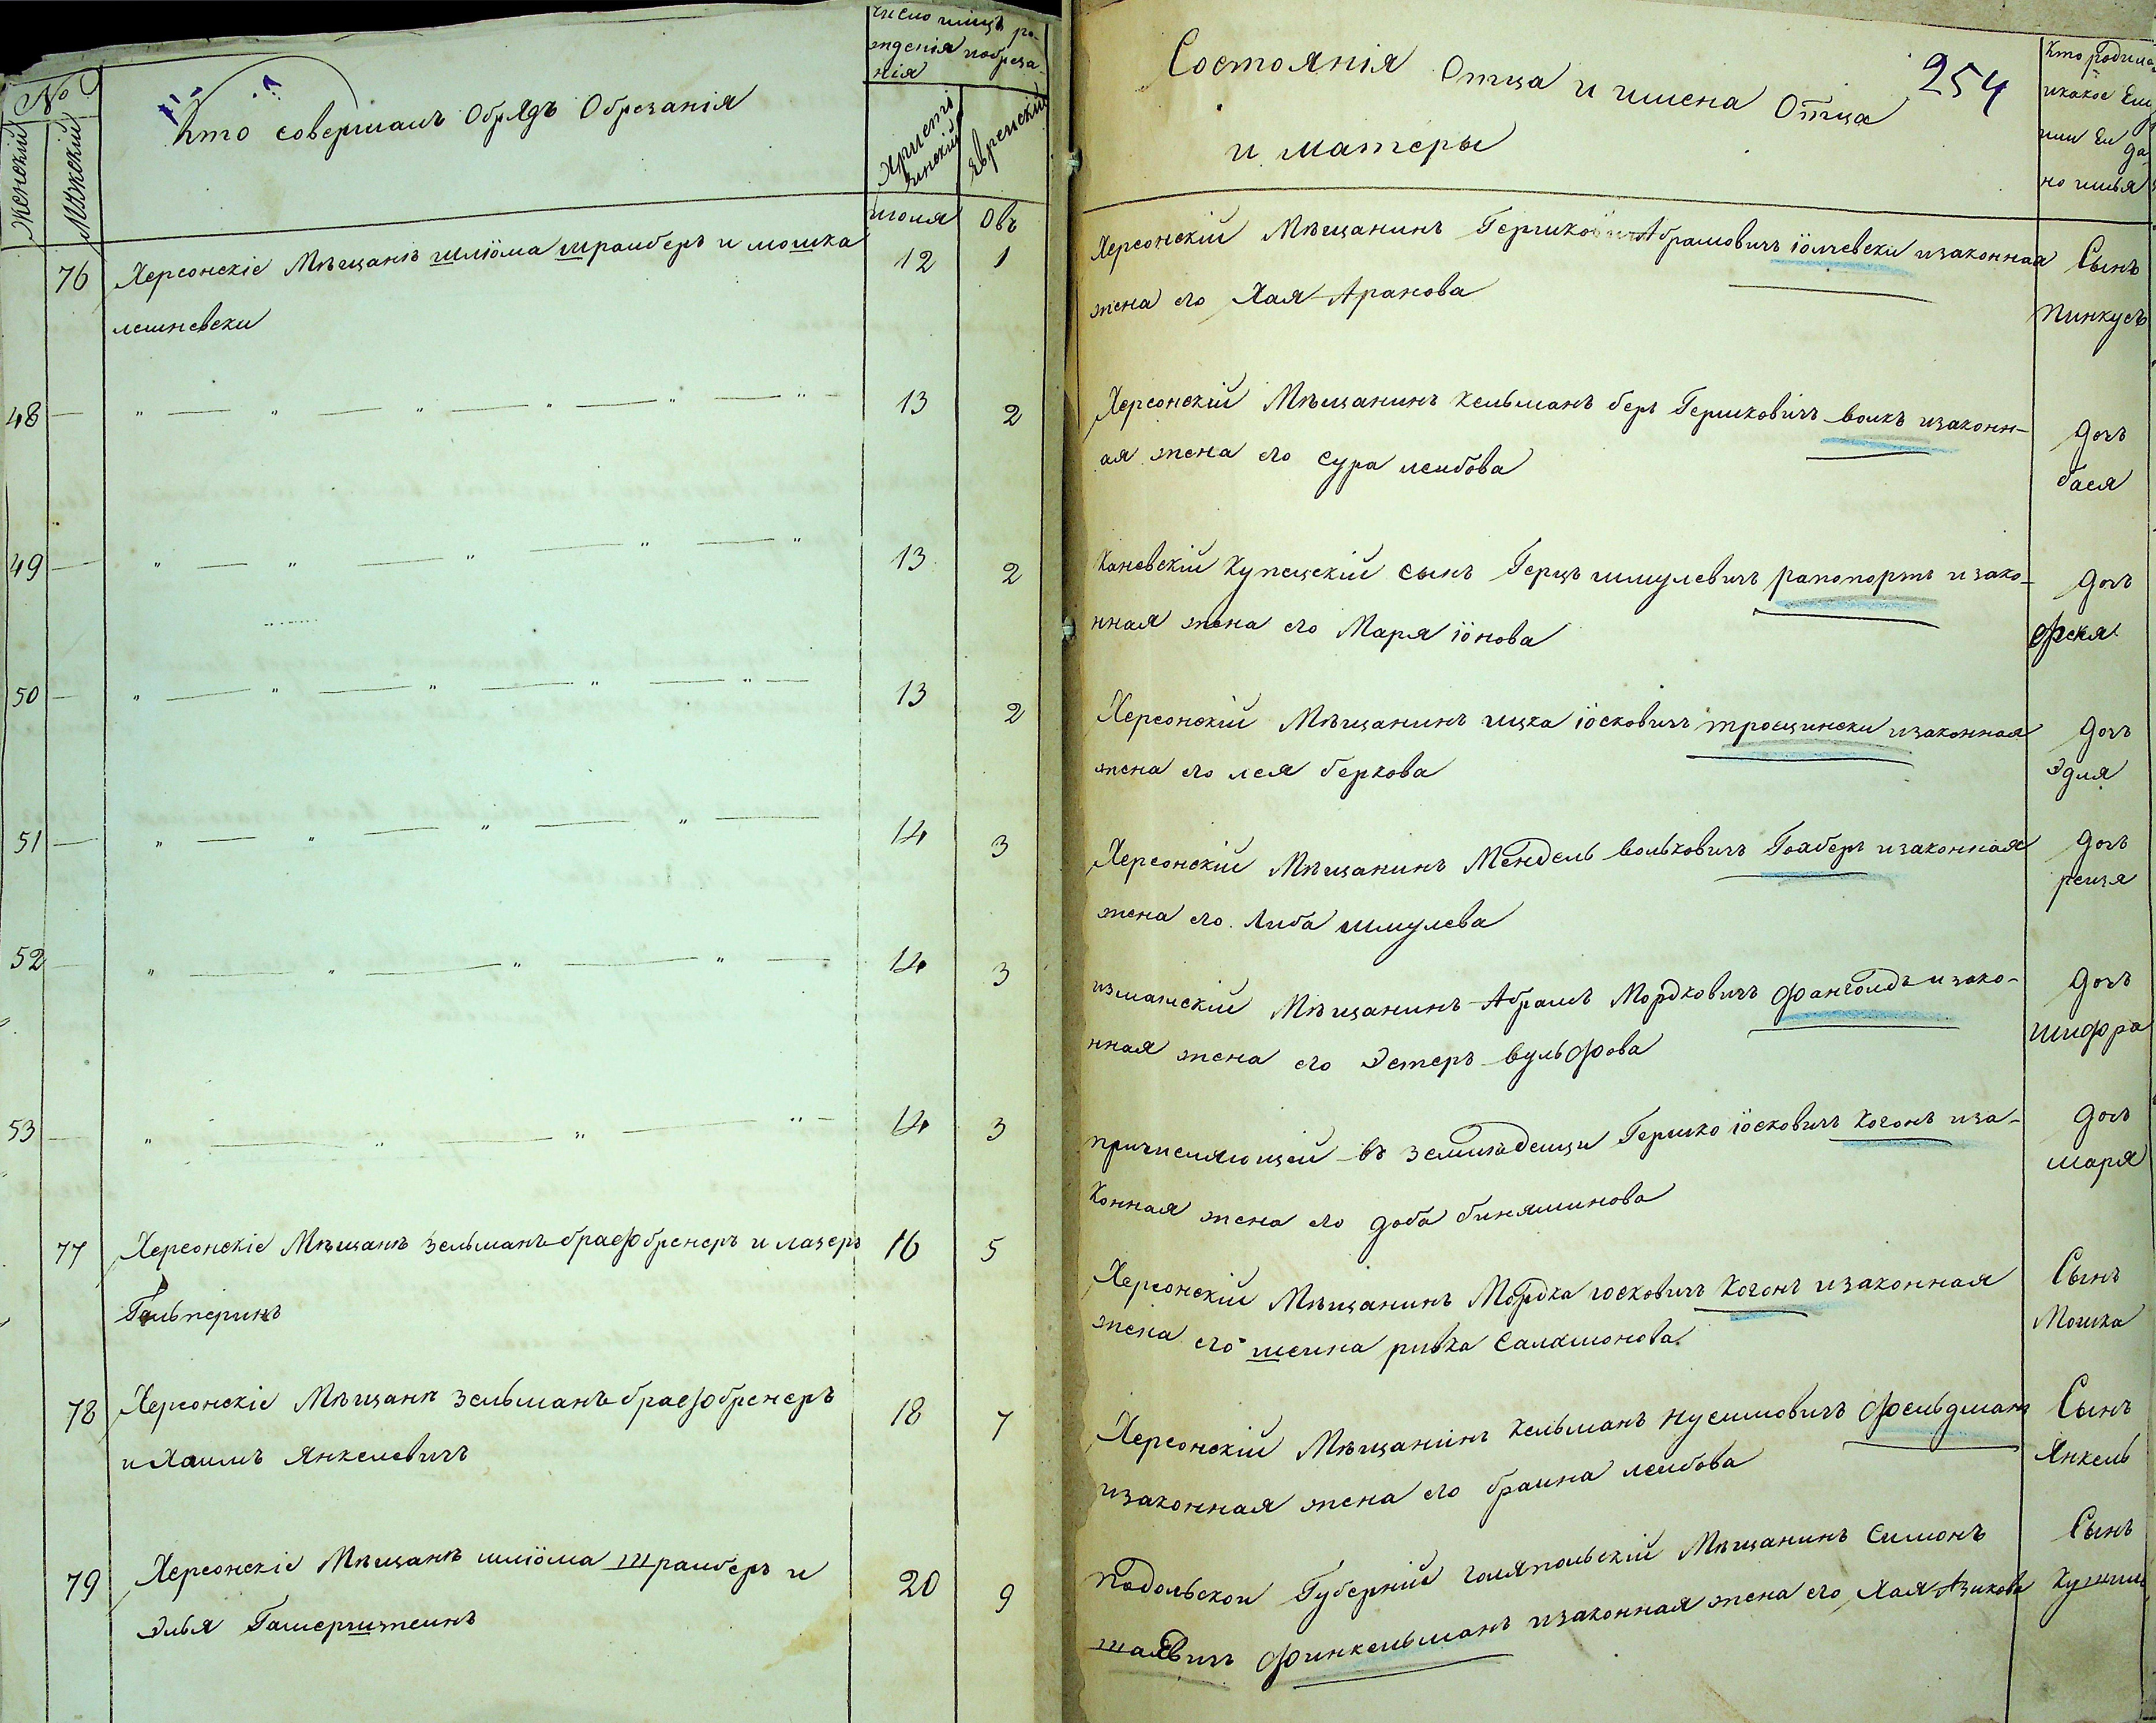 №
Женскій
Мужскій
Кто совершалъ Обрядъ Обрезанія
число
рожденія иобреза
нія
Христі
янскій
Еврейскій
июля Овъ
76 Херсонскіе Мѣщанѣ шлiома шрайберъ и мошка 12 1
лешневски
48 — " — " — " — " — " — 13 2
49 — " — " — " — " — " 13 2
50 — " — " — " — " — " — 13 2
51 — " — " — " — " — 14 3
52 — " — " — " — " — 14 3
53 — " — " — " — " — 14 3
77 Херсонскіе Мѣщанѣ Зельманъ брасфбренеръ и лазеръ 16 5
Гальперинъ
78 Херсонскіе Мѣщанѣ зельманъ брасфбренеръ 18 7
и Хаимъ Янкелевичъ
79 Херсонскіе Мѣщанѣ шлiома шрайберъ и 20 9
элья
254
Состоянія Отца и имена Отца
и матеры
Кто родился
икакое Ему
или Ей да
но имья
Херсонскій Мѣщанинъ Гершко Абрамовичъ іолчевски изаконная Сынъ
жена его Хая Аранова Пинкусъ
Херсонскій Мѣщанинъ Кельманъ беръ Гершковичъ волкъ изаконн- дочъ
ая жена его Сура леибова бася
Каневскій Купецскій сынъ Герцъ шмулевичъ рапопортъ изако- дочъ
нная жена его Маря іонова
Херсонскій Мѣщанинъ ицка іосковичъ трощински изаконная дочъ
жена его лея беркова эдля
Херсонскій Мѣщанинъ Мендель вольковичъ изаконная дочъ
жена его Либа шмулева реизя
измаилскій Мѣщанинъ Абрамъ Мордковичъ фанголдъ изако- дочъ
нная жена его Эстеръ вульфова шифра
причисляющей въ Гершко іосковичъ Когонъ иза- дочъ
конная жена его доба биняминова маря
Херсонскій Мѣщанинъ Мордка иосковичъ Когонъ изаконная Сынъ
жена его шеина ривка Саламонова Мошка
Херсонскій Мѣщанинъ Кельманъ нусимовичъ фельдманъ Сынъ
изаконная жена его браина леибова Янкель
подольскои Губерніи голяпольскій Мѣщанинъ Симонъ Сынъ
финкельманъ изаконная жена его Хая Азикова